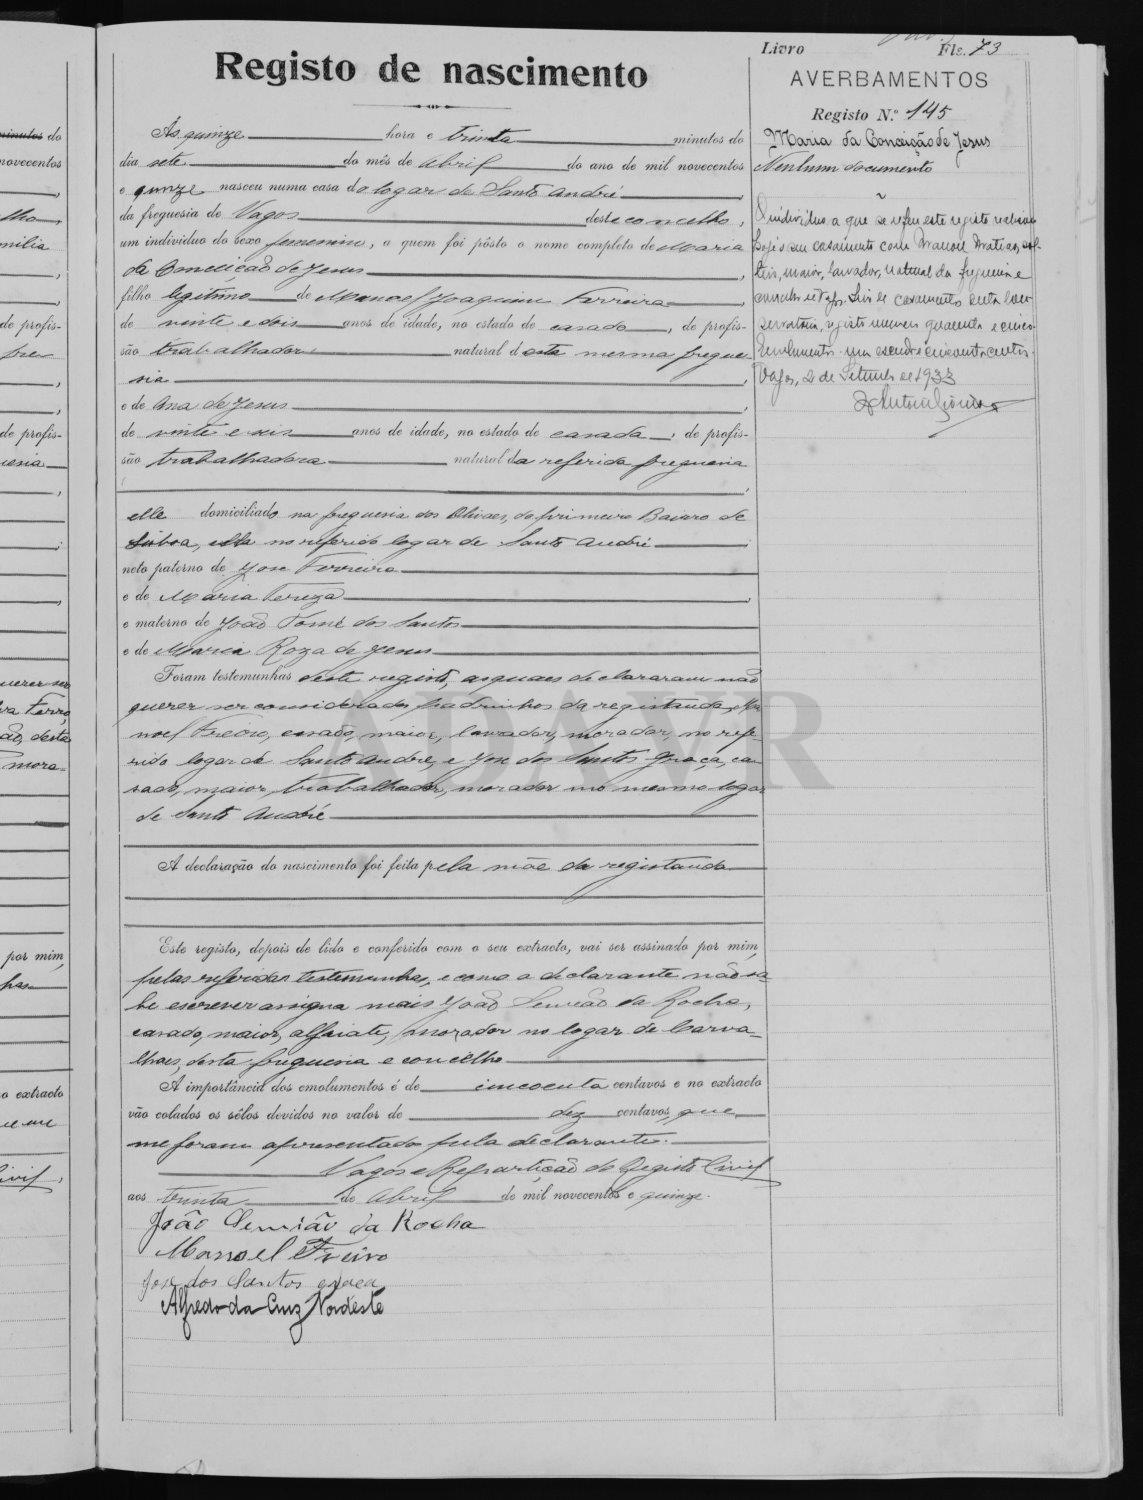 Livro Fls. 73
Registo de nascimento
AVERBAMENTOS
Registo N.º 145
Maria da Conceição de Jesus
Nenhum documento
O individuo a que se refere este registo realisou
hoje o seu casamento com Manoel Matias, sol-
teiro, maior, lavrador, natural da freguesia e
concelho de Vagos. Livro de casamentos desta Con-
servatoria, registo numero quarenta e cinco.
Emolumentos um escudo e cincoenta centavos.
Vagos, 2 de Setembro de 1933
Ás quinze hora e trinta minutos do
dia sete do mês de Abril do ano de mil novecentos
e quinze nasceu numa casa do logar de Santo André,
da freguesia de Vagos deste concelho,
um individuo do sexo femenino, a quem foi pôsto o nome completo de Maria
da Conceição de Jesus,
filho legitimo de Manoel Joaquim Ferreira,
de vinte e dois anos de idade, no estado de casado, de profis-
são trabalhador natural desta mesma fregue-
sia,
e de Ana de Jesus,
de vinte e seis anos de idade, no estado de casada, de profis-
são trabalhadora natural da referida freguesia
,
elle domiciliado na freguesia dos Olivaes, do primeiro Bairro de
Lisboa, ella no referido logar de Santo André;
neto paterno de Jose Ferreira
e de Maria Tereza,
e materno de João Tomé dos Santos
e de Maria Roza de Jesus
Foram testemunhas deste registo, as quaes declararam não
querer ser considerados padrinhos da registanda, Ma-
noel Freire, casado, maior, lavrador, morador, no refe-
rido logar de Santo André, e Jose dos Santos Graça, ca-
sado, maior, trabalhador, morador no mesmo logar
de Santo André
A declaração do nascimento foi feita pela mãe da registanda
Este registo, depois de lido e conferido com o seu extracto, vai ser assinado por mim,
pelas referidas testemunhas, e como a declarante não sa-
be escrever assigna mais João Simião da Rocha,
casado, maior, alfaiate, morador no logar de Carva-
lhaes, desta freguesia e concelho
A importância dos emolumentos é de cincoenta centavos e no extracto
vão colados os sêlos devidos no valor de dez centavos, que
me foram apresentados pela declarante.
Vagos e Repartição do Registo Civil
aos trinta de Abril de mil novecentos e quinze.
João Simião da Rocha
Manoel Freire
Jose dos Santos Graça
Alfredo da Cruz Nordeste
ADAVR